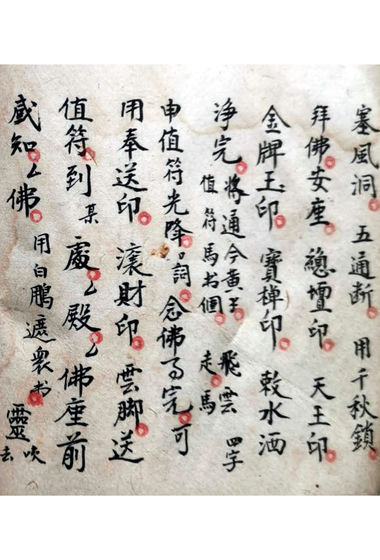 塞風洞。五通断。用千秋鎖。
拜佛安座。總壇印。天王印。
金牌王印。寶棹印。敕水洒
净完。將通今黄王值符馬书個。飛雲走馬四字
申值符光降。詞。念佛可
用奉送印。滚財印。雲脚送
值符。到某處。殿。佛座前
感知。佛。用白鵬遞衆书。靈吹去